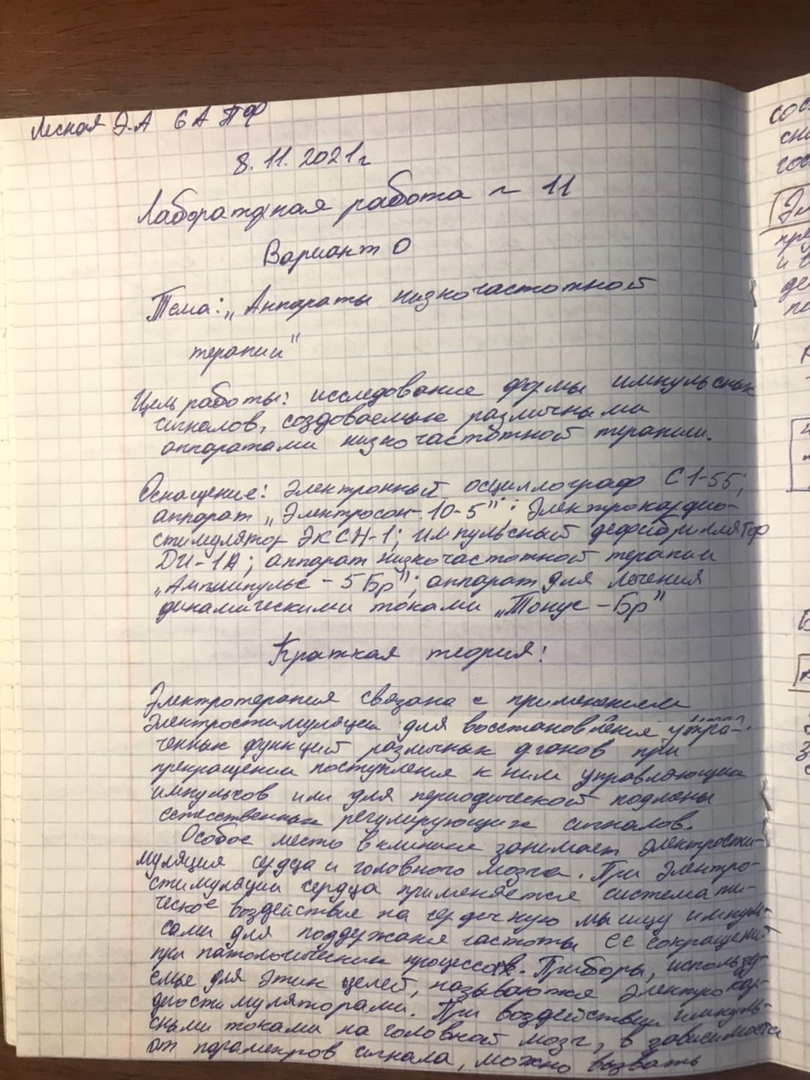 Лесная Э.А 6А ПФ
8.11.2021г
Лабораторная работа № 11
Вариант 0
Тема: „Аппараты низкочастотной
терапии"
Цель работы: исследование формы импульсных
сигналов, создоваемых различными
аппаратами низкочастотной терапии.
Оснащение: Электронный осциллограф С1-55;
аппарат „Электросон-10-5"; Электрокардио-
стимулятор ЭКСН-1; импульсный дефибриллятор
ДИ-1А; аппарат низкочастотной терапии
„Амплипульс-5Бр"; аппарат для лечения
динамическими токами „Тонус-Бр"
Краткая теория:
Электротерапия связана с применением
электростимуляции для восстановления утра-
ченных функций различных оганов при
прекращении поступления к ним управляющих
импульсов или для периодической подмены
естественных регулирующих сигналов.
Особое место в клинике занимает электрости-
муляция сердца и головного мозга. При электро-
стимуляции сердца применяется системати-
ческое воздействие на сердечную мышцу импуль-
сами для поддержания частоты её сокращений
при патологических процессах. Приборы, используе-
емые для этих целей, называются электрокар-
диостимуляторами. При воздействии импуль-
сными токами на головной мозг, в зависимости
от параметров сигнала, можно вызвать